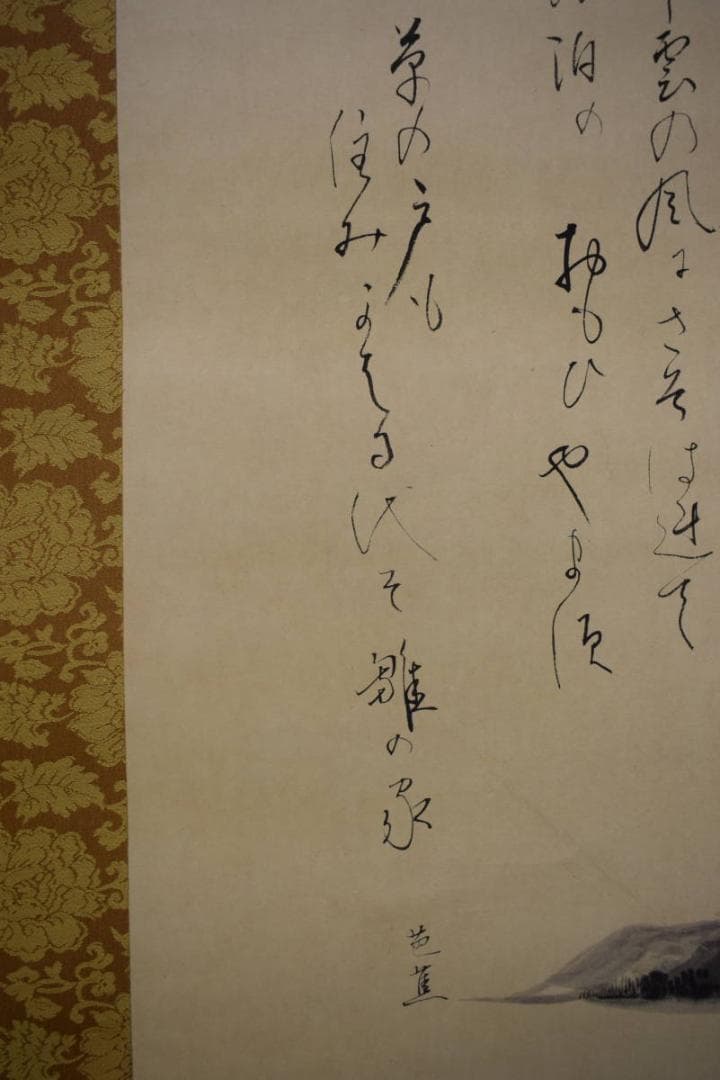 雲の風にさそはれて
泊の おもひやます
草の戸も
住みかはる代そ雛の家
芭蕉